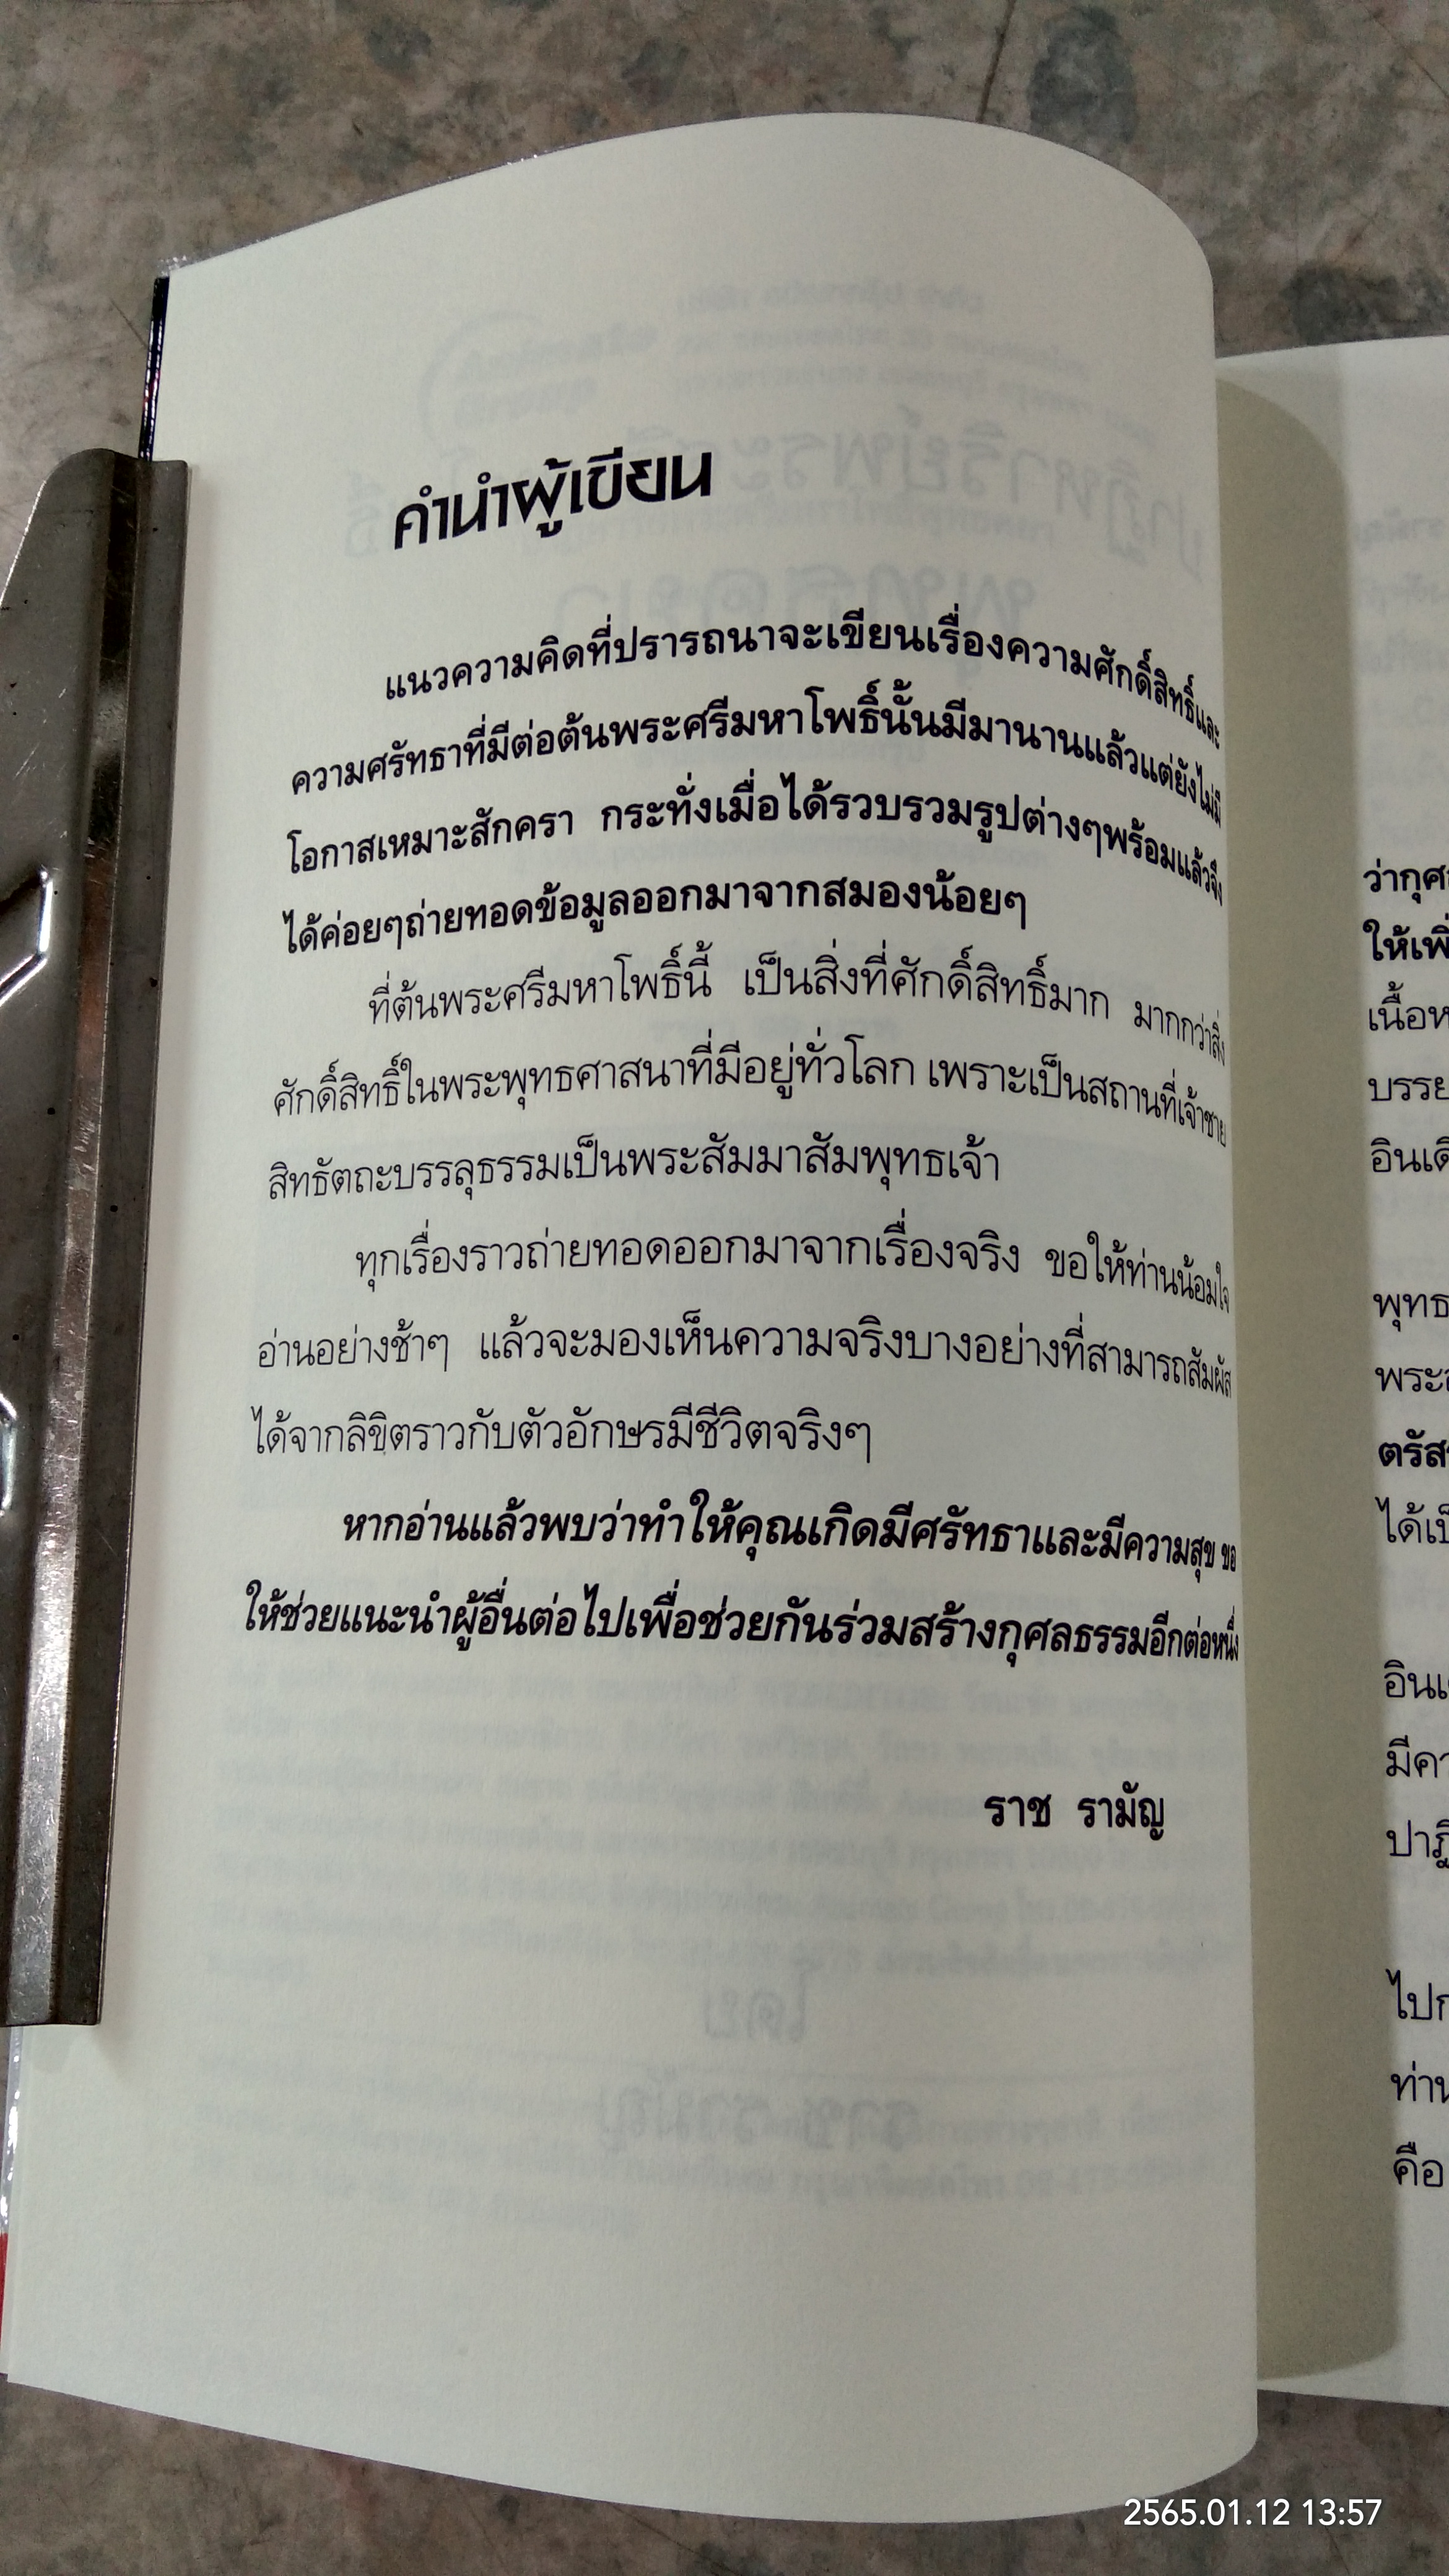 คำนำผู้เขียน
แนวความคิดที่ปรารถนาจะเขียนเรื่องความศักดิ์สิทธิ์และ
ความศรัทธาที่มีต่อต้นพระศรีมหาโพธิ์นั้นมีมานานแล้วแต่ยังไม่มี
โอกาสเหมาะสักครา กระทั่งเมื่อได้รวบรวมรูปต่างๆพร้อมแล้วจึง
ได้ค่อยๆถ่ายทอดข้อมูลออกมาจากสมองน้อยๆ
ที่ต้นพระศรีมหาโพธิ์นี้ เป็นสิ่งที่ศักดิ์สิทธิ์มาก มากกว่าสิ่ง
ศักดิ์สิทธิ์ในพระพุทธศาสนาที่มีอยู่ทั่วโลก เพราะเป็นสถานที่เจ้าชาย
สิทธัตถะบรรลุธรรมเป็นพระสัมมาสัมพุทธเจ้า
ทุกเรื่องราวถ่ายทอดออกมาจากเรื่องจริง ขอให้ท่านน้อมใจ
อ่านอย่างช้าๆ แล้วจะมองเห็นความจริงบางอย่างที่สามารถสัมผัส
ได้จากลิขิตราวกับตัวอักษรมีชีวิตจริงๆ
หากอ่านแล้วพบว่าทำให้คุณเกิดมีศรัทธาและมีความสุข ขอ
ให้ช่วยแนะนำผู้อื่นต่อไปเพื่อช่วยกันร่วมสร้างกุศลธรรมอีกต่อหนึ่ง
ราช รามัญ
ให้เพิ่
บรรย
พุทธ
ได้เป็
มีคว
ไปก
ท่าน
คือ
2565.01.12 13:57